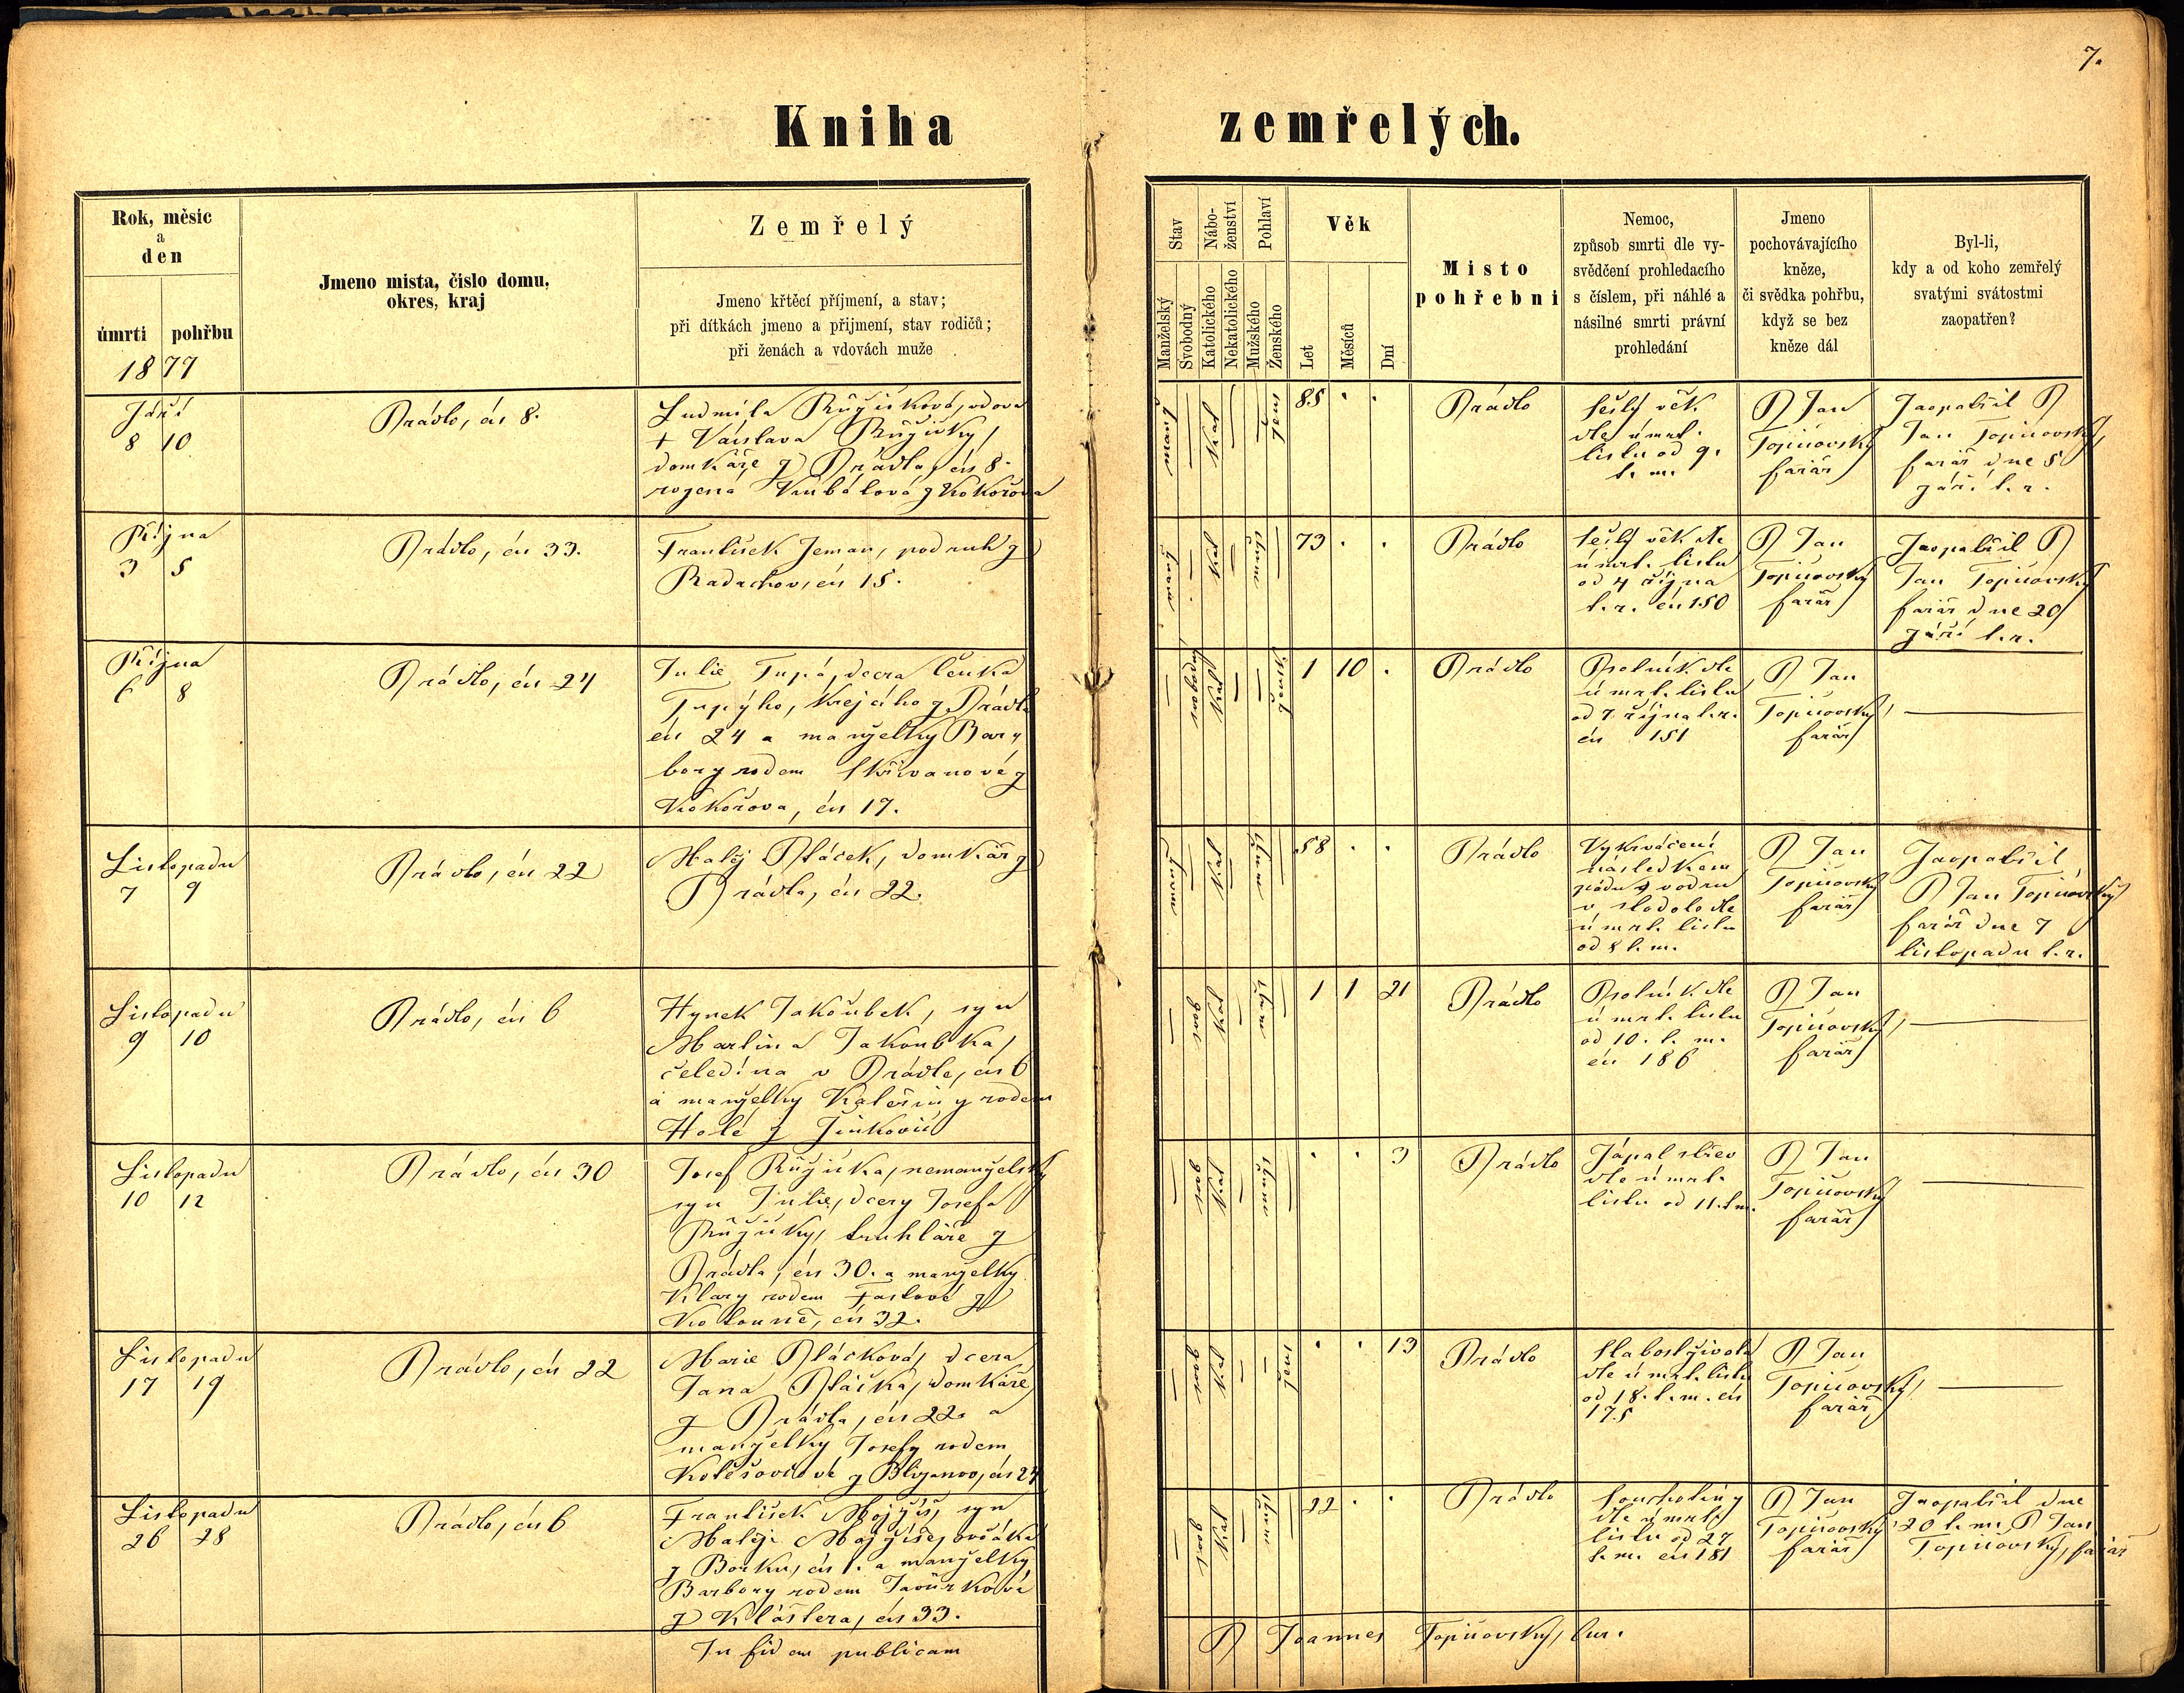 7.
Kniha zemřelých.
Rok, měsíc
a
den
úmrtí pohřbu
1877
Jmeno mista, čislo domu,
okres, kraj
Zemřelý
Jmeno křtěcí příjmení, a stav;
při dítkách jmeno a přijmení, stav rodičů;
při ženách a vdovách muže
Stav
Nábo-
ženství
Pohlaví
Manželský
Svobodný
Katolického
Nekatolického
Mužského
Ženského
Věk
Let
Měsíců
Dní
Misto
pohřebni
Nemoc,
způsob smrti dle vy-
svědčení prohledacího
s číslem, při náhlé a
násilné smrti právní
prohledání
Jmeno
pochovávajícího
kněze,
či svědka pohřbu,
když se bez
kněze dál
Byl-li,
kdy a od koho zemřelý
svatými svátostmi
zaopatřen?
Září
8 10
Prádlo, čís 8.
Ludmila Růžičková, vdova
+ Václava Růžičky,
domkáře z Prádla, čís 8.
rozená Kubátová z Kokořova
manž — kat — — žens
85 . .
Prádlo
sešlý věk
dle úmrt.
listu od 9.
t. m.
P Jan
Topičovský
farář
Zaopatřil P
Jan Topičovský,
farář dne 5
září t. r.
Října
3 5
Prádlo, čís 33.
František Zeman, podruh z
Radochov, čís 15.
manž — kat — mužs —
73 . .
Prádlo
sešlý věk dle
úmrt. listu
od 4 října
t. r. čís 150
P Jan
Topičovský
farář
Zaopatřil P
Jan Topičovský
farář dne 20
září t. r.
Října
6 8
Prádlo, čís 24
Julie Tupá, dcera Čeňka
Tupýho, krejčího z Prádla
čís 24 a manželky Bar-
bory rodem Skřivanové z
Kokořova, čís 17.
— svobodný kat — — ženské
1 10 .
Prádlo
Psotník dle
úmrt. listu
od 7 října t. r.
čís 151
P Jan
Topičovský,
farář
Listopadu
7 9
Prádlo, čís 22
Matěj Ptáček, domkář z
Prádla, čís 22.
manž — kat — mužs —
58 . .
Prádlo
Vykrvácení
následkem
pádu s vodru
v stodole dle
úmrt. listu
od 8 t. m.
P Jan
Topičovský
farář
Zaopatřil
P Jan Topičovský
farář dne 7
listopadu t. r.
Listopadu
9 10
Prádlo, čís 6
Hynek Jakoubek, syn
Martina Jakoubka,
čeledína v Prádle, čís 6
a manželky Kateřiny rodem
Holé z Žinkovic
— svob kat — mužs —
1 1 21
Prádlo
Psotník dle
úmrt. listu
od 10. t. m.
čís 186
P Jan
Topičovský,
farář
Listopadu
10 12
Prádlo, čís 30
Josef Růžička, nemanželský
syn Julie, dcery Josefa
Růžičky, truhláře z
Prádla, čís 30. a manželky
Klary rodem
čís 32.
— svob kat — mužs —
. . 3
Prádlo
Zápal střev
dle úmrt.
listu od 11. t. m.
P Jan
Topičovský
farář
Listopadu
17 19
Prádlo, čís 22
Marie Ptáčková, dcera
Jana Ptáčka, domkáře
z Prádla, čís 22. a
manželky Josefy rodem
z čís 24
— svob kat — — žens
. . 13
Prádlo
Slabost života
dle úmrt. listu
od 18. t. m. čís
175
P Jan
Topičovský,
farář
Listopadu
26 28
Prádlo, čís 6
František Mojžíš, syn
Matěje Mojžíše, ovčáka
z Borku, čís 1. a manželky
Barbory rodem Javůrkové
z Kláštera, čís 33.
— svob kat — mužs —
22 . .
Prádlo
Souchotiny
dle úmrt.
listu od 27
t. m. čís 181
P Jan
Topičovský
farář
Zaopatřil dne
20 t. m. P Jan
Topičovský, farář
In fidem publicam
P Joannes Topičovský, cur.